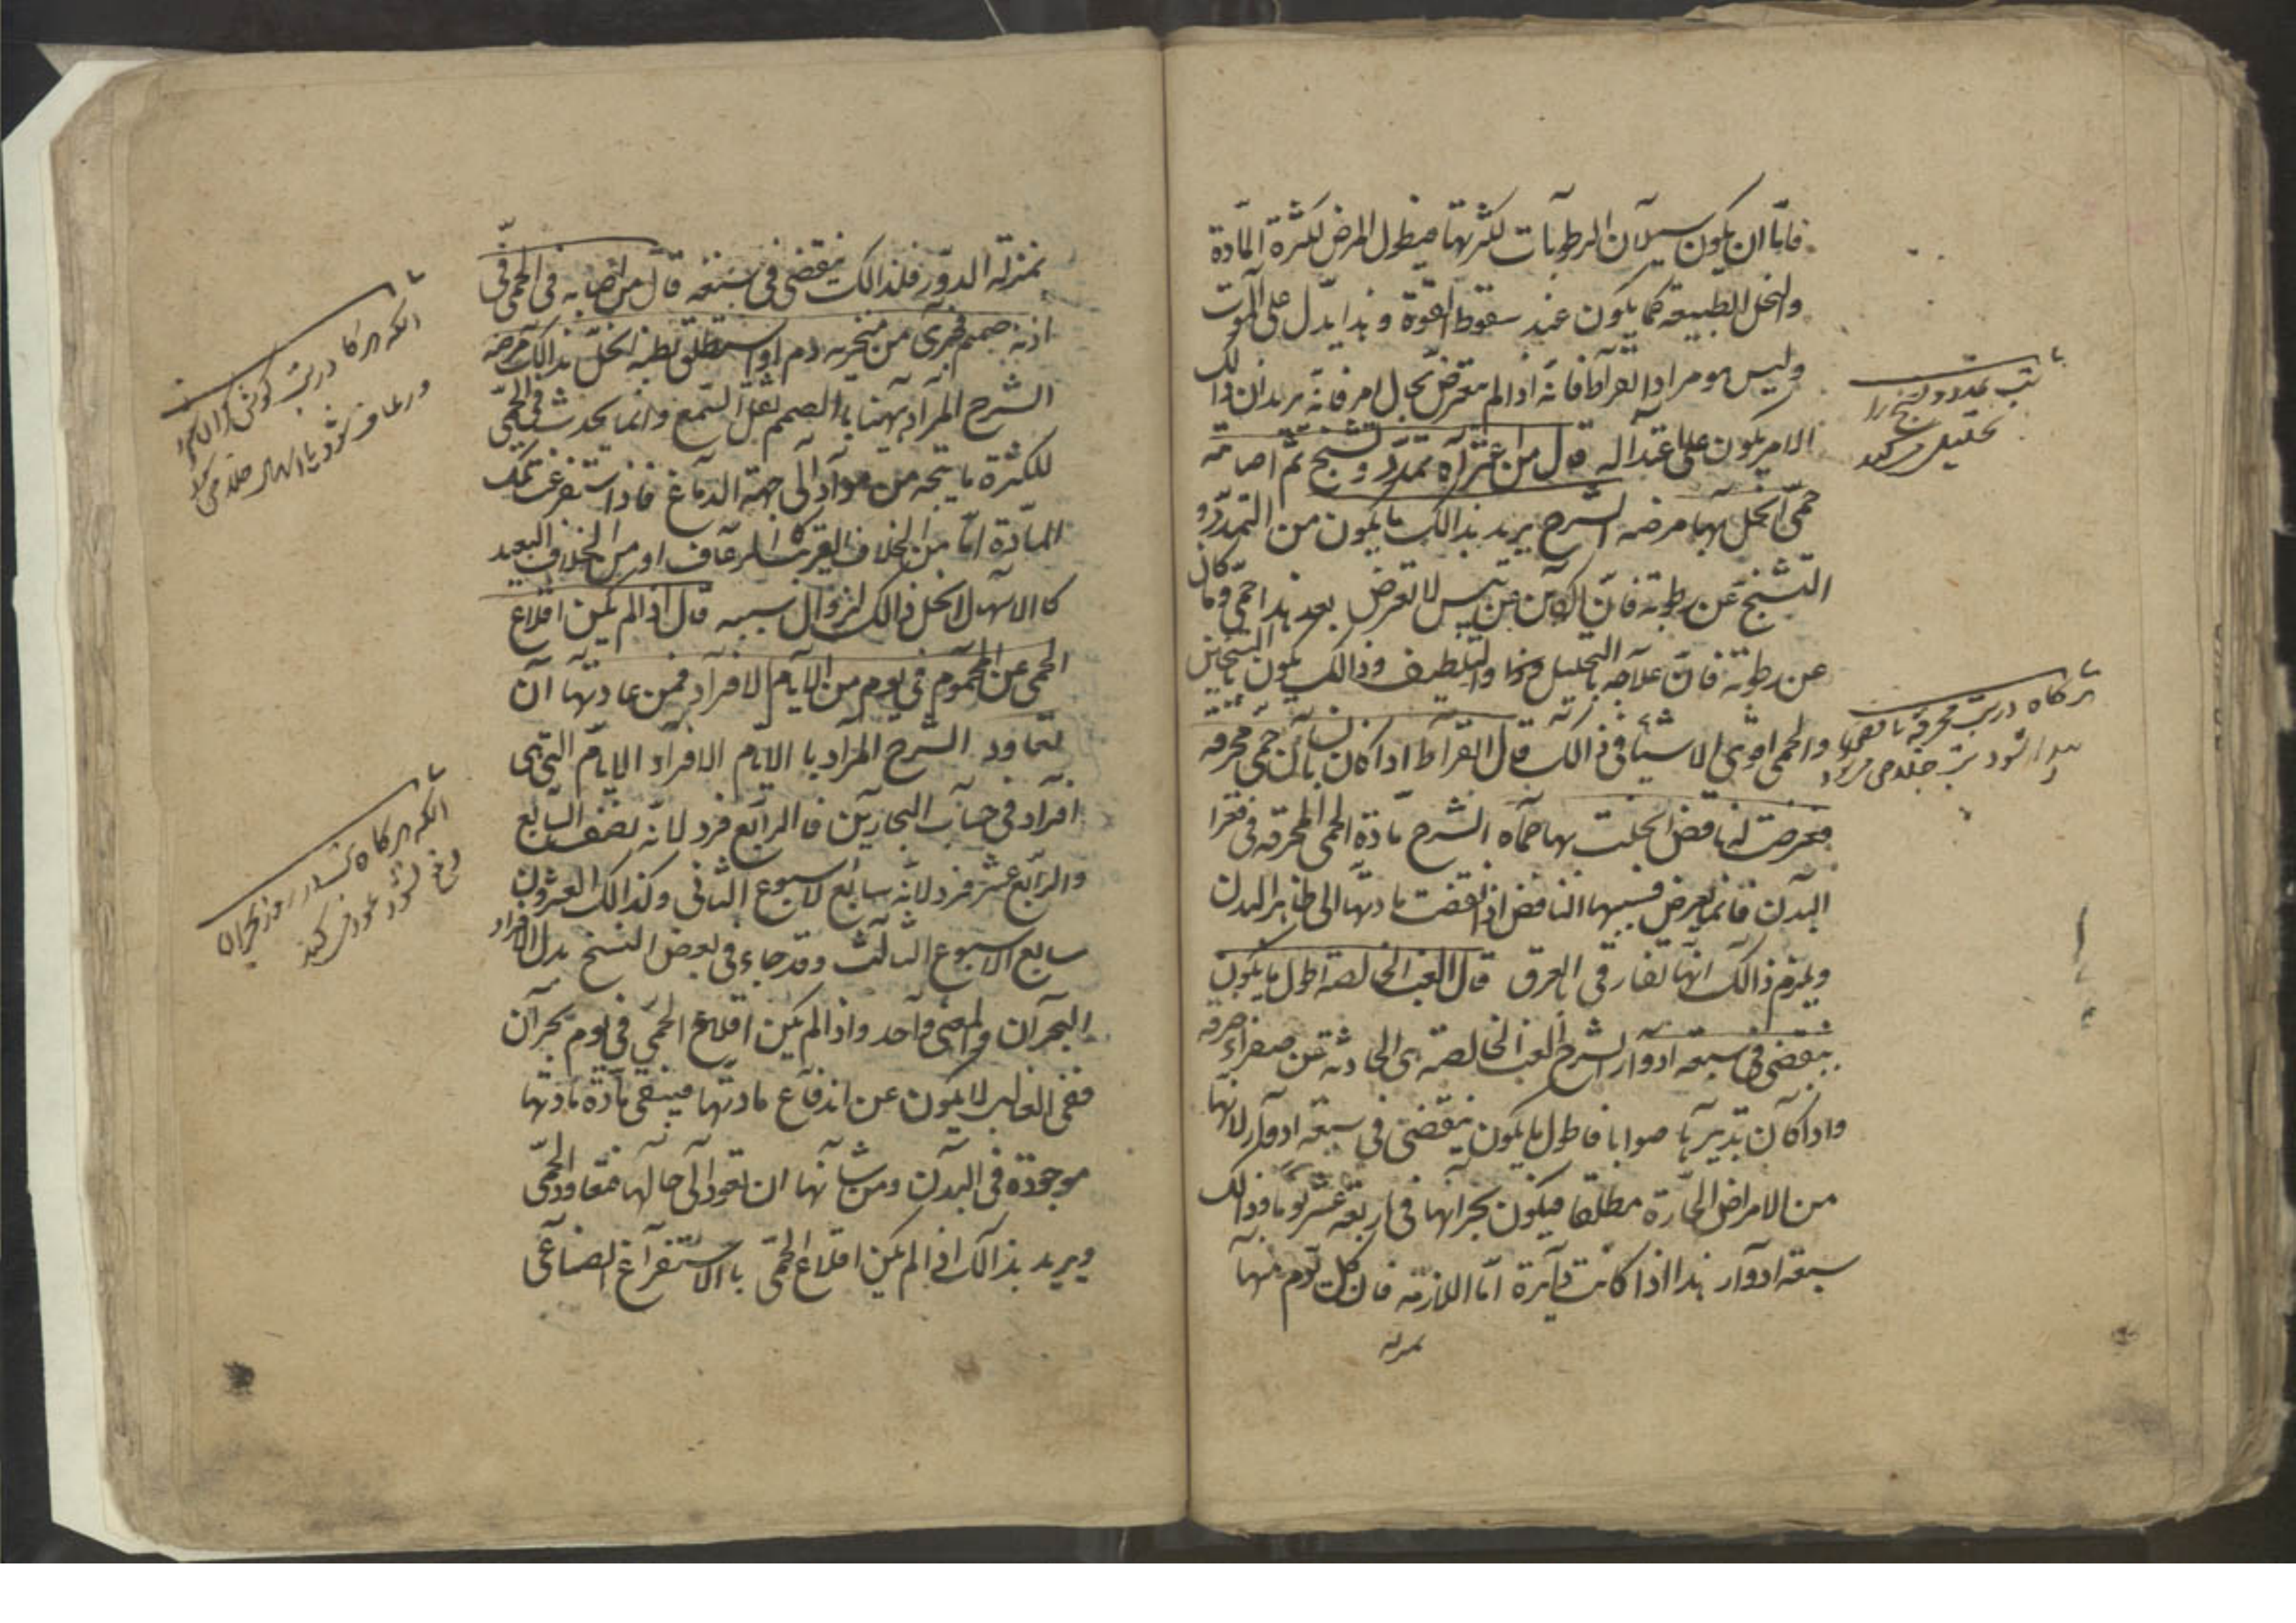 فاما ان يكون سيلان الرطوبات لكثرتها فيطول المرض لكثرة المادة
والنحل الطبيعه كما يكون عند سقوط القوة وهذا يدل على الموت
وليس هو مراد ابقراط فانه اذا لم يتعرض بحال امر فانه يريد ان ذالك
الامر يكون على اعتداله قال من اعتراه تمدد وتشنج ثم اصابته
حمى انحل بها مرضه الشرح يريد بذالك ما يكون من التمدد و
التشنج عن رطوبة فان الكاين عن يبس لا تعرض بعد هذا حمى وما كان
عن رطوبة فان علاجه بالتحليل والتلطيف وذالك يكون بالتسخين
والحمى اقوى الاشياء فى ذالك قال ابقراط اذا كان بانسان حمى محرقه
فعرضت له نافض انحلت بها حماه الشرح مادة الحمى المحرقه فى قعر
البدن فانما يعرض فيها النافض اذا انقضت مادتها الى ظاهر البدن
ويلزم ذالك انها تفارق بالعرق قال الغب الخالصة اطول ما يكون
ينقضى فى سبعه ادوار الشرح الغب الخالصة هى الحادثة عن صفراء صرفه
واذا كان تدبيرها صوابا فاطول ما يكون ينقضى فى سبعة ادوار لانها
من الامراض الحارة مطلقا فيكون بحرانها فى اربعة عشر يوما وذالك
سبعه ادوار هذا اذا كانت دايرة اما اللازمة فان كل يوم منها
بمنزلة
تب تمدد و تشنج را
تحليل مى كند
هر كاه در تب محرقه نافض
پيدا شود تب
بمنزلة الدور فلذالك ينقضى فى سبعة قال من اصابه فى الحمى فى
اذنه صمم فجرى من منخريه دم او استطلق بطنه انحل بذالك مرضه
الشرح المراد ههنا بالصمم ثقل السمع وانما يحدث فى الحمى
لكثرة ما يتجه من مواد الى جهة الدماغ فاذا استفرغت تلك
المادة اما من الخلاف القريب كالرعاف او من الخلاف البعيد
كالاسهال انحل ذالك لزوال سببه قال اذا لم يكن اقلاع
الحمى عن المحموم فى يوم من الايام الافراد فمن عادتها ان
تعاود الشرح المراد با الايام الافراد الايام التى هى
افراد فى حساب البحارين فا الرابع فرد لانه نصف السابع
والرابع عشر فرد لانه سابع الاسبوع الثانى وكذالك العشرون
سابع الاسبوع الثالث وقد جاء فى بعض النسخ بدل الافراد
البحران والمعنى واحد واذا لم يكن اقلاع الحمى فى يوم بحران
ففى الغالب لا يكون عن اندفاع مادتها فيبقى مادة مادتها
موجودة فى البدن ومن شانها ان تعود الى حالها فتعاود الحمى
ويريد بذالك اذا لم يكن اقلاع الحمى با الاستفراغ الصناعى
انكه هر كاه در تب كوش
و رعاف شود يا اسهال
انكه هر كاه تب در روز بحران
دفع نشود عود مى كند